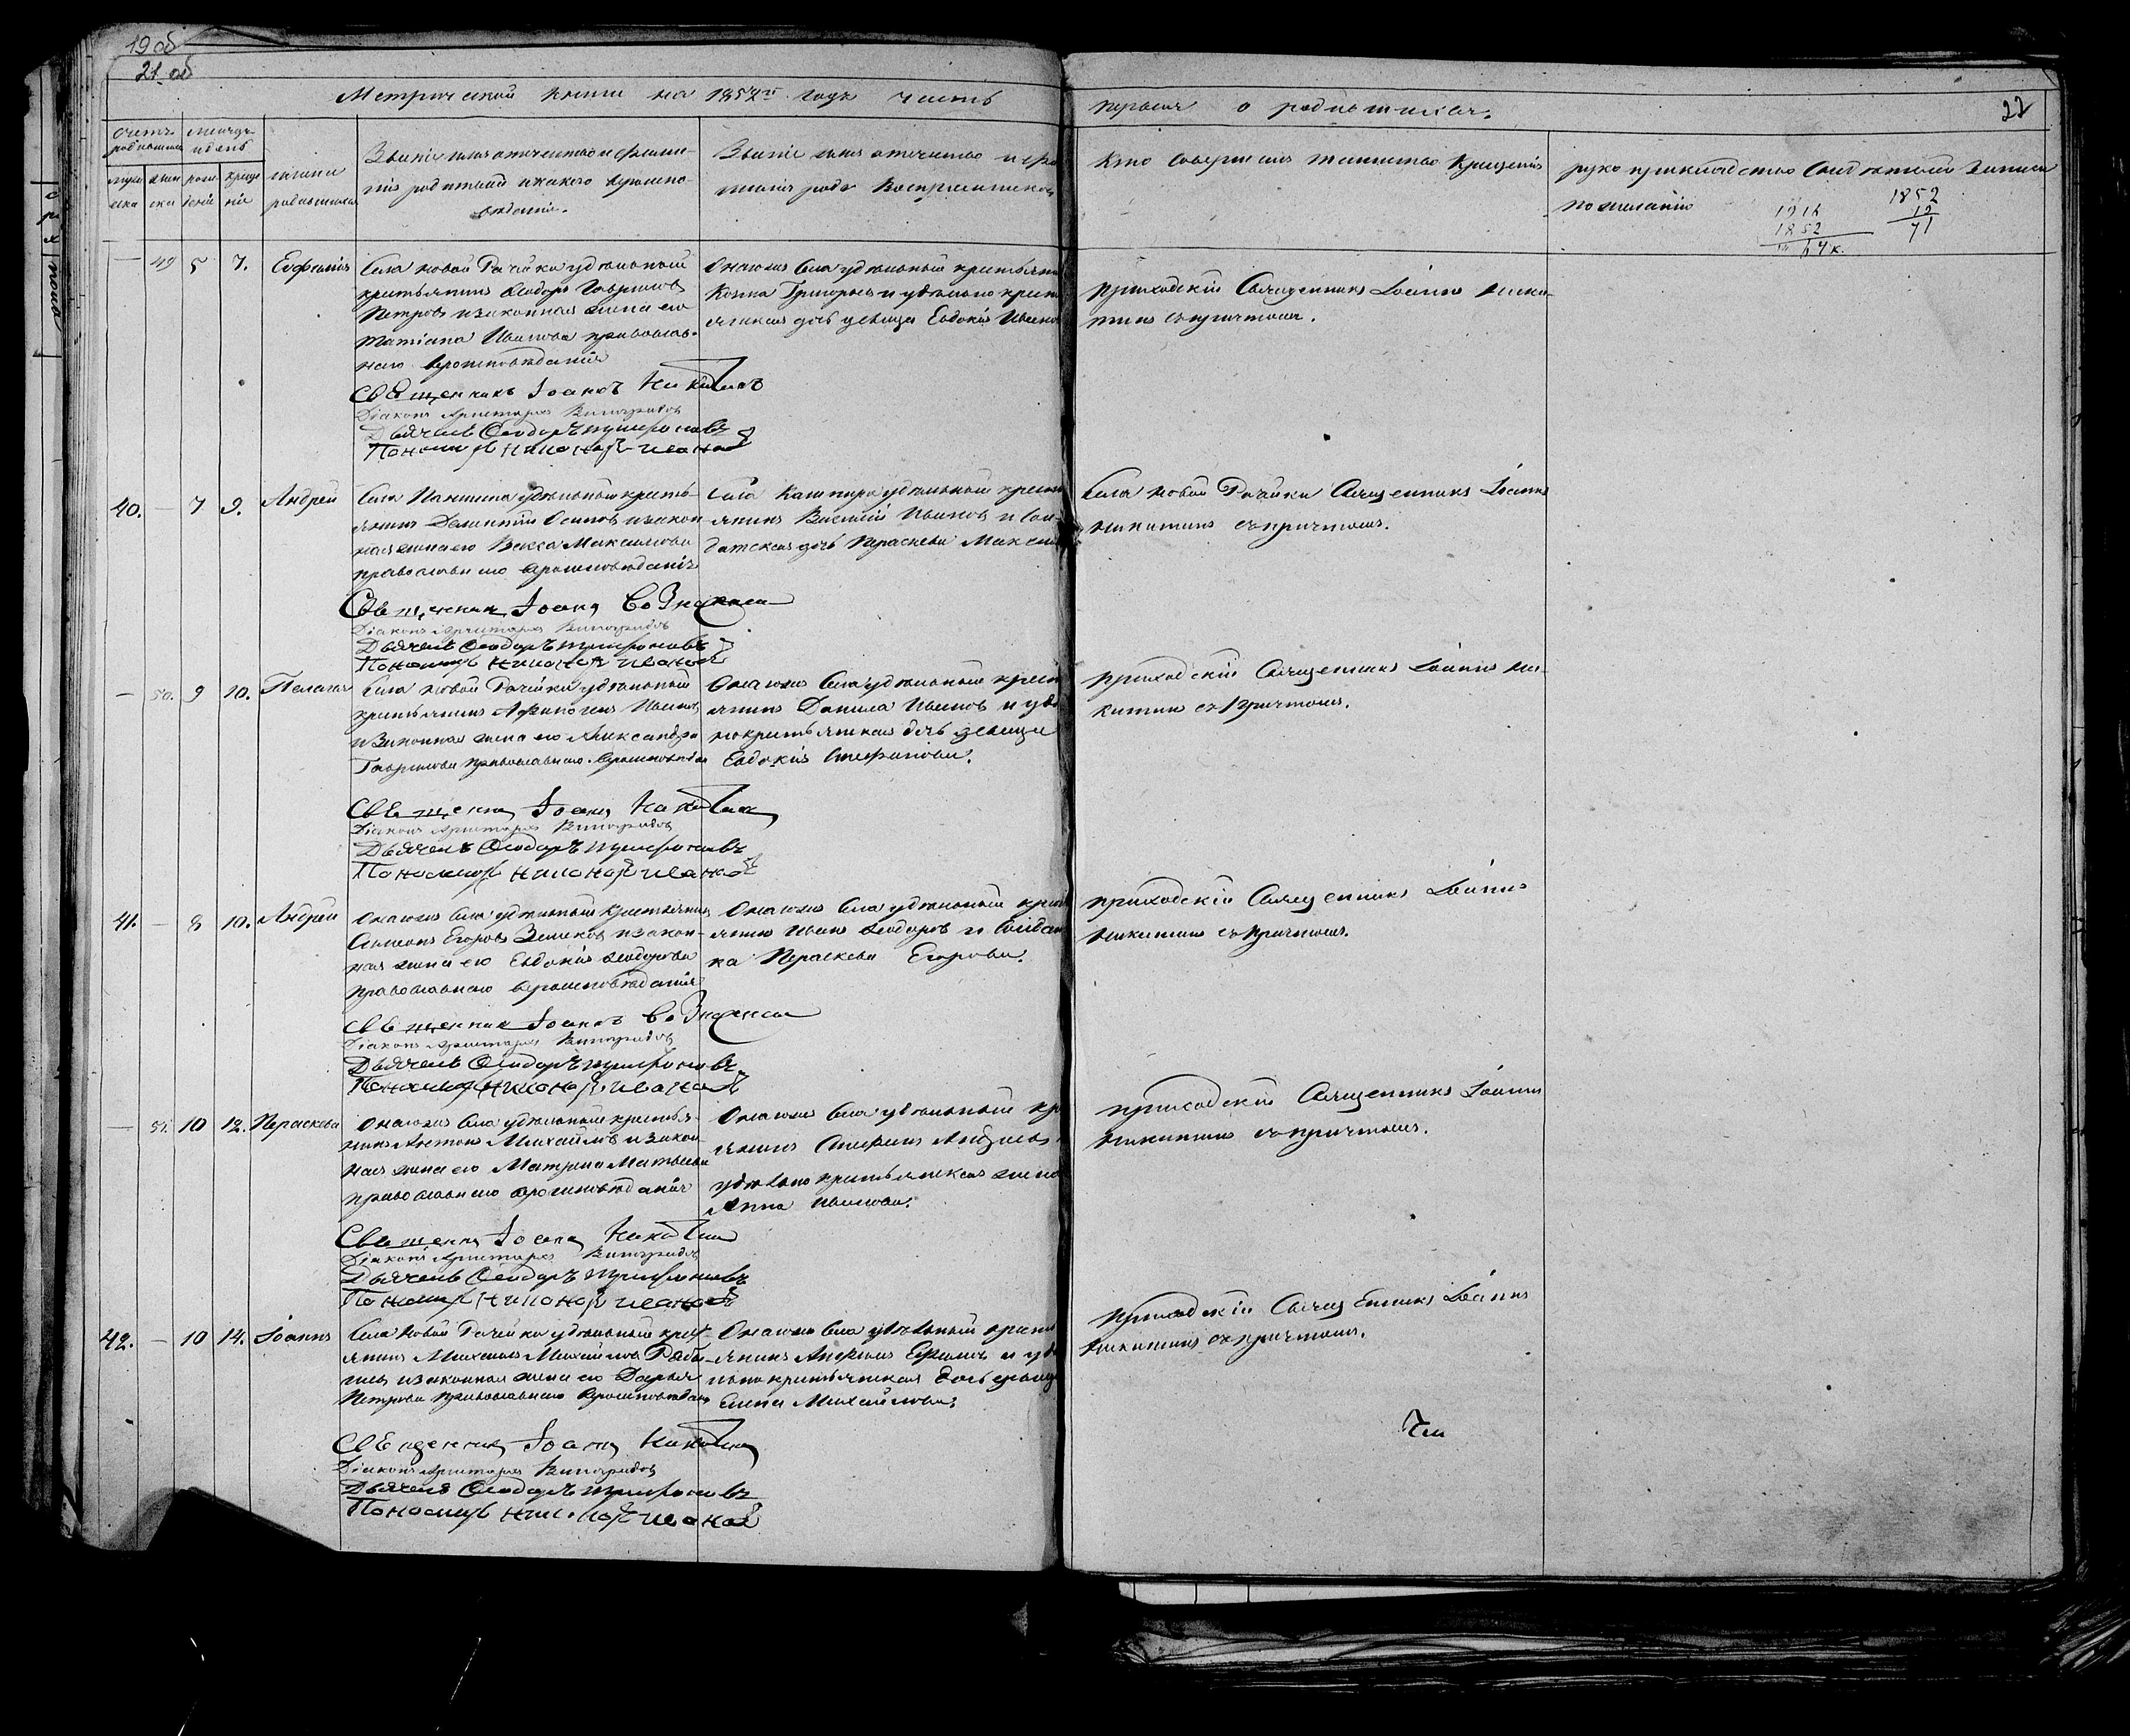 19 об
21 об
Метрической книги на 1852й годъ часть
первая о родившихся.
22
Счетъ родившихся
Месяцъ и день
муж
жен
рожденія
крещенія
имена родившихся
Званіе имя отчество и фамилія родителей и какого вероисповеданія.
Званіе имя отчество и фамилія
Кто совершалъ таинство крещенія
рукоприкладство свидетелей записи по желанію
1916
1852
64
1852
19
71
— 49 5 7. Евфимія
Села новой Рачейки удѣльный
крестьянинъ Ѳеодоръ Гавриловъ
Петровъ и законная жена его
Татіана Иванова православнаго вѣроисповѣданія
Онагожъ села удѣльный крестьян
Козма Григорьевъ и удѣльно крест
янская дочь девица Евдокія Иванов
приходскій Священникъ Іоаннъ Никитинъ съ причтомъ.
Священникъ Іоаннъ Никитинъ
Діаконъ Аристархъ Виноградовъ
Дьячекъ Ѳеодоръ Трифоновъ
Пономарь Никаноръ Ивановъ
40. — 7 9. Андрей
Села удѣльный крестьянинъ Осиповъ и законная жена его Васса Максимова
православнаго вѣроисповѣданія
Села Кашпира удѣльный крестьянинъ Василій Ивановъ и солдатская дочь Параскева Максим
Села новой Рачейки Священникъ Іоаннъ
Никитинъ съ причтомъ.
Священникъ Іоаннъ
Діаконъ Аристархъ Виноградовъ
Дьячекъ Ѳеодоръ Трифоновъ
Пономарь Никаноръ Ивановъ
— 50. 9 10. Пелагія
Села новой Рачейки удѣльный
крестьянинъ Афиногенъ Ивановъ
и законная жена его Александра
Гаврилова православнаго вѣроисповѣдан
Онагожъ села удѣльный крест
янинъ Данила Ивановъ и удѣ
нокрестьянская дочь девица
Евдокія Стефанова.
приходскій Священникъ Іоаннъ Никитин съ причтомъ.
Священникъ Іоаннъ Никитин
Діаконъ Аристархъ Виноградовъ
Дьячекъ Ѳеодоръ Трифоновъ
Пономарь Никаноръ Ивановъ
41. — 8 10. Андрей
Онагожъ села удѣльный крестьянинъ
Симеонъ Егоровъ и законная жена его Евдокія Ѳеодорова
православнаго вѣроисповѣданія
Онагожъ села удѣльный крест
янинъ Иванъ Ѳеодоровъ и солдат
ка Параскева Егорова.
приходскій Священникъ Іоаннъ
Никитинъ съ причтомъ.
Священникъ Іоаннъ
Діаконъ Аристархъ Виноградовъ
Дьячекъ Ѳеодоръ Трифоновъ
Пономарь Никаноръ Ивановъ
— 51. 10 12. Параскева
Онагожъ села удѣльный крестьянинъ Антонъ Михайловъ и законная жена его Матрена Матвеева
православнаго вѣроисповѣданія
Онагожъ села удѣльный кр
янинъ Стефанъ
удѣльно крестьянская жена
Анна Иванова.
приходскій Священникъ Іоаннъ
Никитинъ съ причтомъ.
Священникъ Іоаннъ Никитин
Діаконъ Аристархъ Виноградовъ
Дьячекъ Ѳеодоръ Трифоновъ
Пономарь Никаноръ Ивановъ
42. — 10 14. Іоаннъ
Села новой Рачейки удѣльный крестьянинъ Михаилъ Михайловъ
и законная жена его Дарья
Петрова православнаго вѣроисповѣдан
Онагожъ села удѣльный крест
янинъ Ефимовъ и удѣ
льнокрестьянская дочь девица
Елена Михайлова.
приходскій Священникъ Іоаннъ
Никитинъ съ причтомъ.
Священникъ Іоаннъ Никитин
Діаконъ Аристархъ Виноградовъ
Дьячекъ Ѳеодоръ Трифоновъ
Пономарь Никаноръ Ивановъ